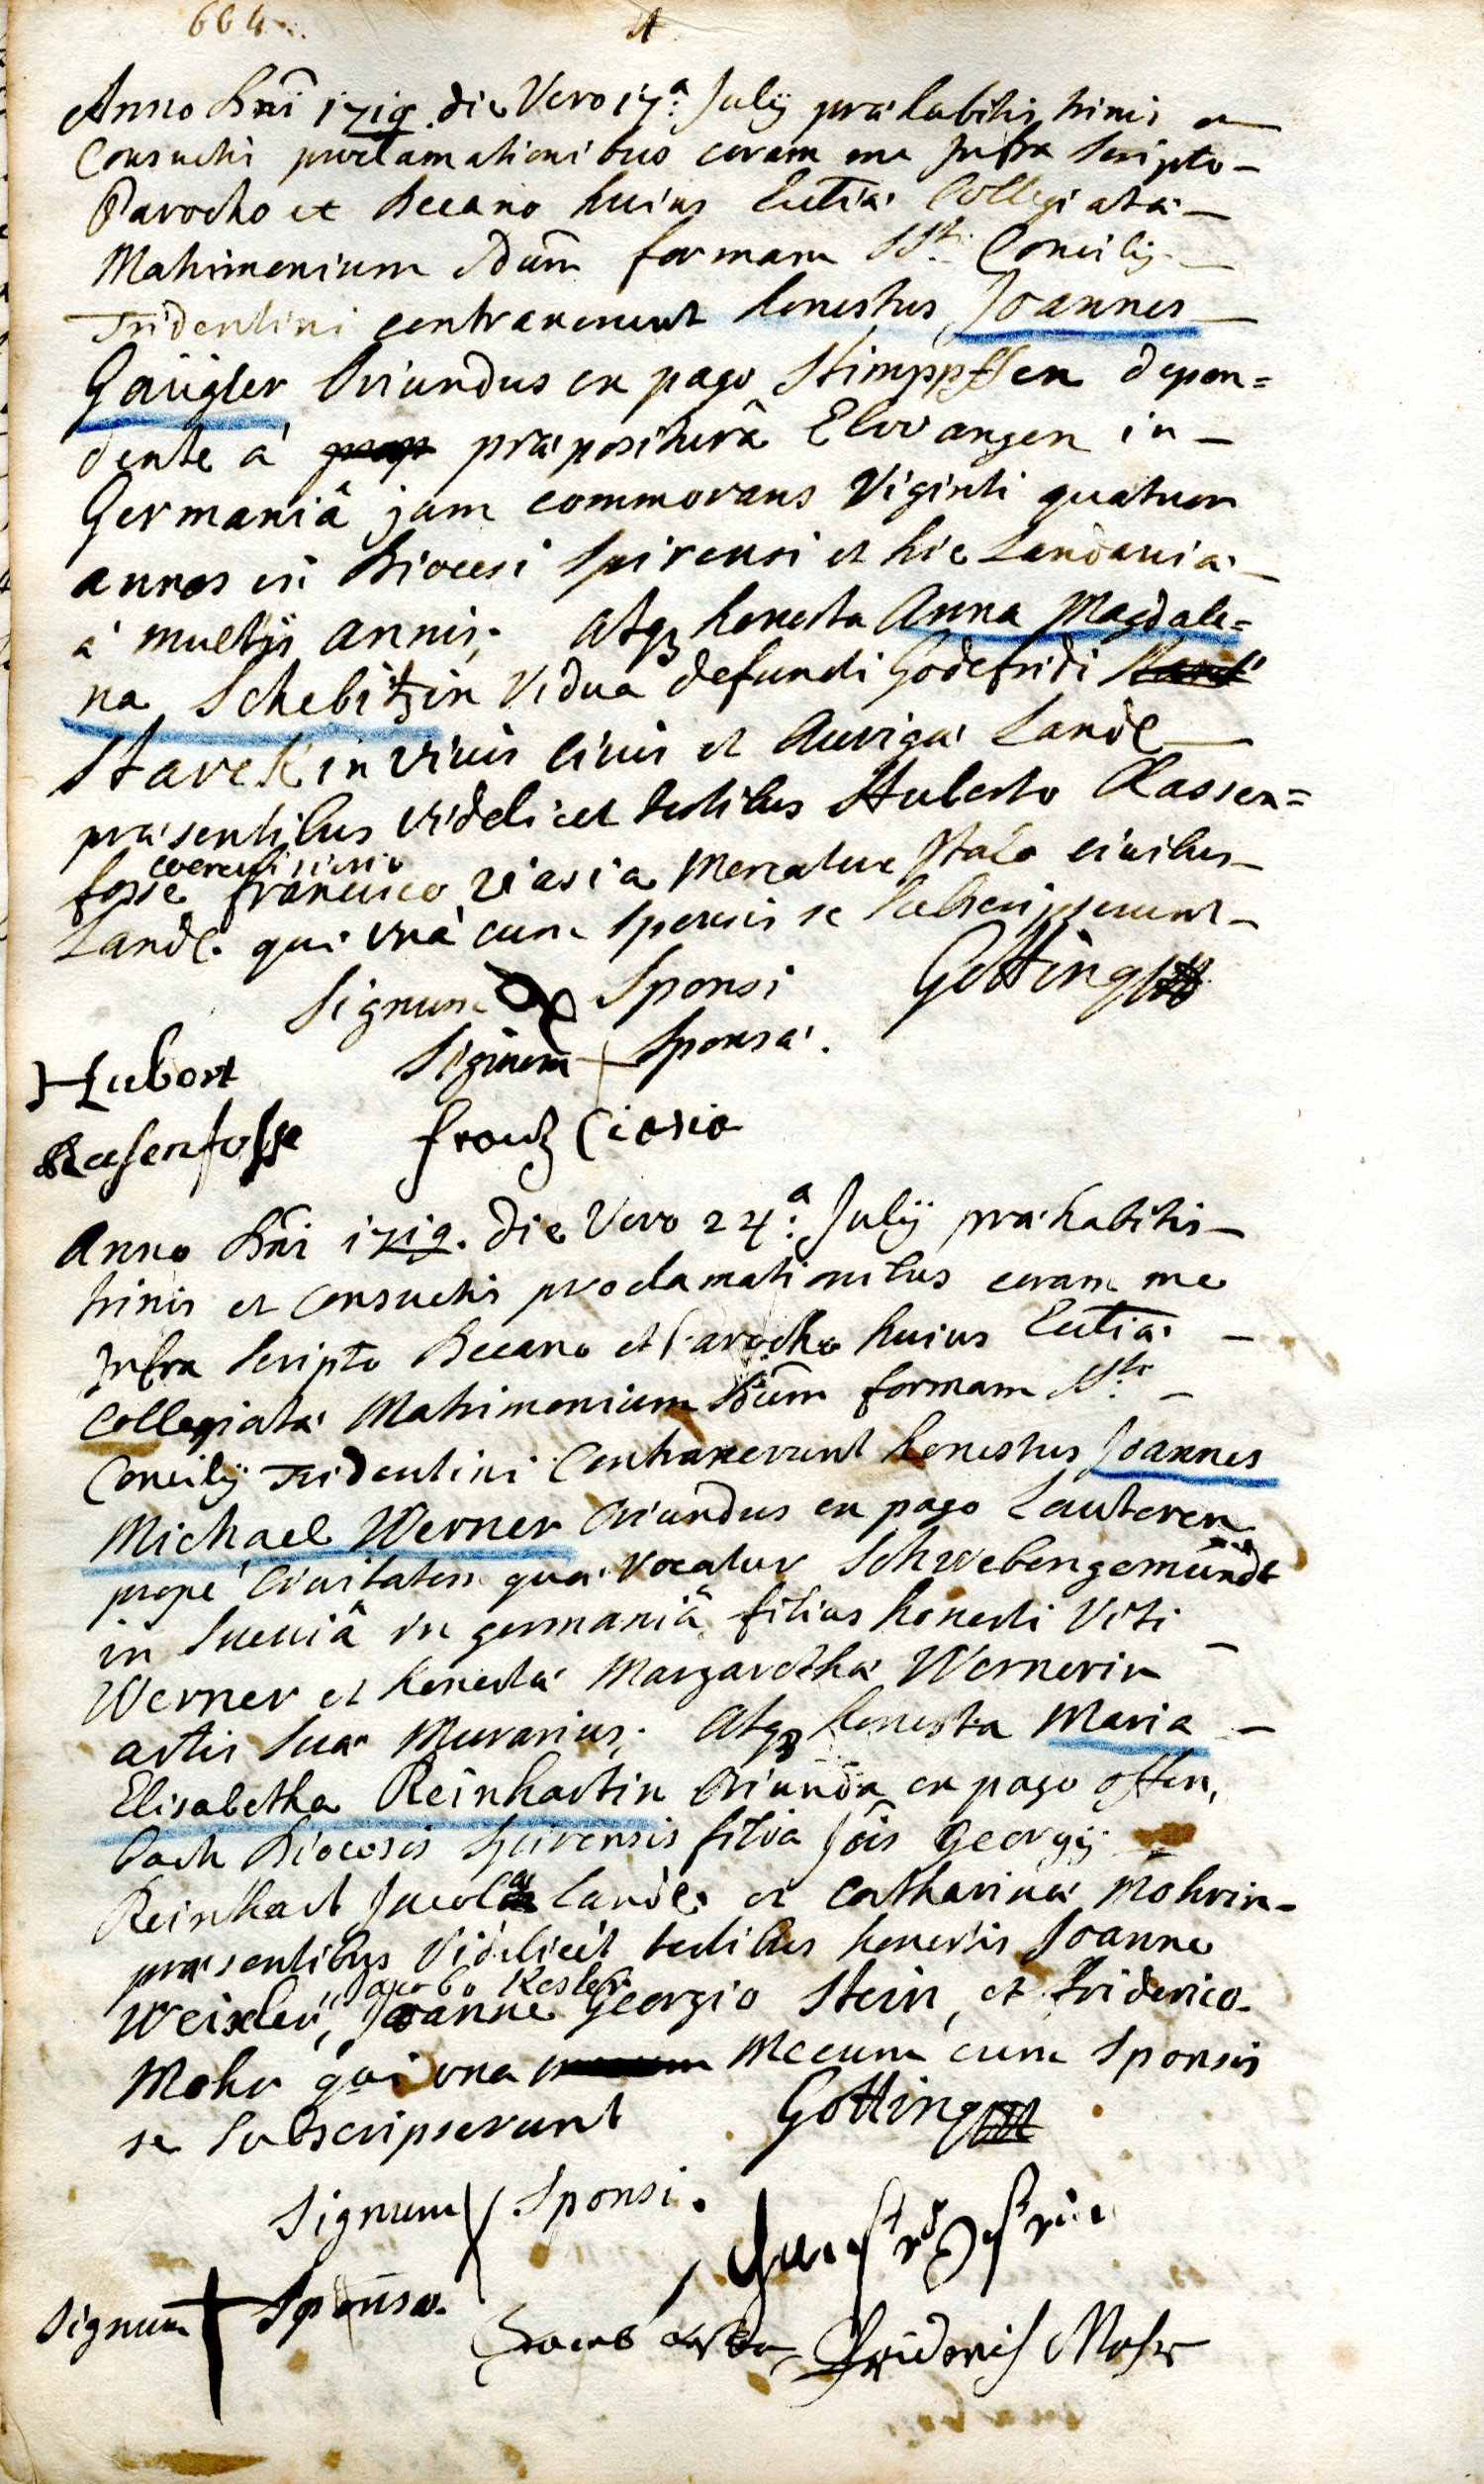 664
A
Anno Dni 1719. die Vero 17a. July præhabitis trinis et
Consuetis proclamationibus coram me Infra Scripto
Parocho et Decano huius Eccliæ Collegiatæ
Matrimonium Sdum formam SSti Concilij
Tridentini contraxerunt honestus Joannes
Gaügler Oriundus ex pago Stimppffen depen=
dente à præpositurâ Elvvangen in
Germaniâ jam commorans Viginti quatuor
annos in Diocesi Spirensi et hic Landaviæ
à multis annis; atq honesta Anna Magdale=
na Schebitzin Vidua defuncti Godefridi
Starck in vivis civis et Aurigæ Landæ
præsentibus videlicet testibus Huberto Rassen=
fosse Francisco Ziasia Mercatore Italo civibus
Landæ. qui unà cum Sponsis se Subscripserunt
Signum Sponsi Gotting
Signum Sponsæ.
Hubert
Rasenfosse frantz Ciasia
Anno Dni 1719. die Vero 24a. July præhabitis
trinis et Consuetis proclamationibus coram me
Infra Scripto Decano et Parocho huius Eccliæ
Collegiatæ Matrimonium Sdum formam SSti
Concilij Tridentini Contraxerunt honestus Joannes
Michael Werner Oriundus ex pago Lauteren
prope Civitatem quæ vocatur Schwebengemündt
in Sueviâ in germaniâ filius honesti Viti
Werner et honestæ Margarethæ Wernerin
artis suæ Murarius; atq honesta Maria
Elisabetha Reinhartin Oriunda ex pago Offen,
bach Diocesis Spirensis filia Jois Georgij
Reinhart Incolæ Landæ et Catharinæ Mohrin
præsentibus Videlicet testibus honestis Joanne
Jacobo Kesler
Weixler, Joanne Georgio Stein, et Friderico
Mohr qui una Mecum cum Sponsis
se Subscripserunt Gotting
Signum Sponsi.
Signum Sponsæ.
Friderich Mohr